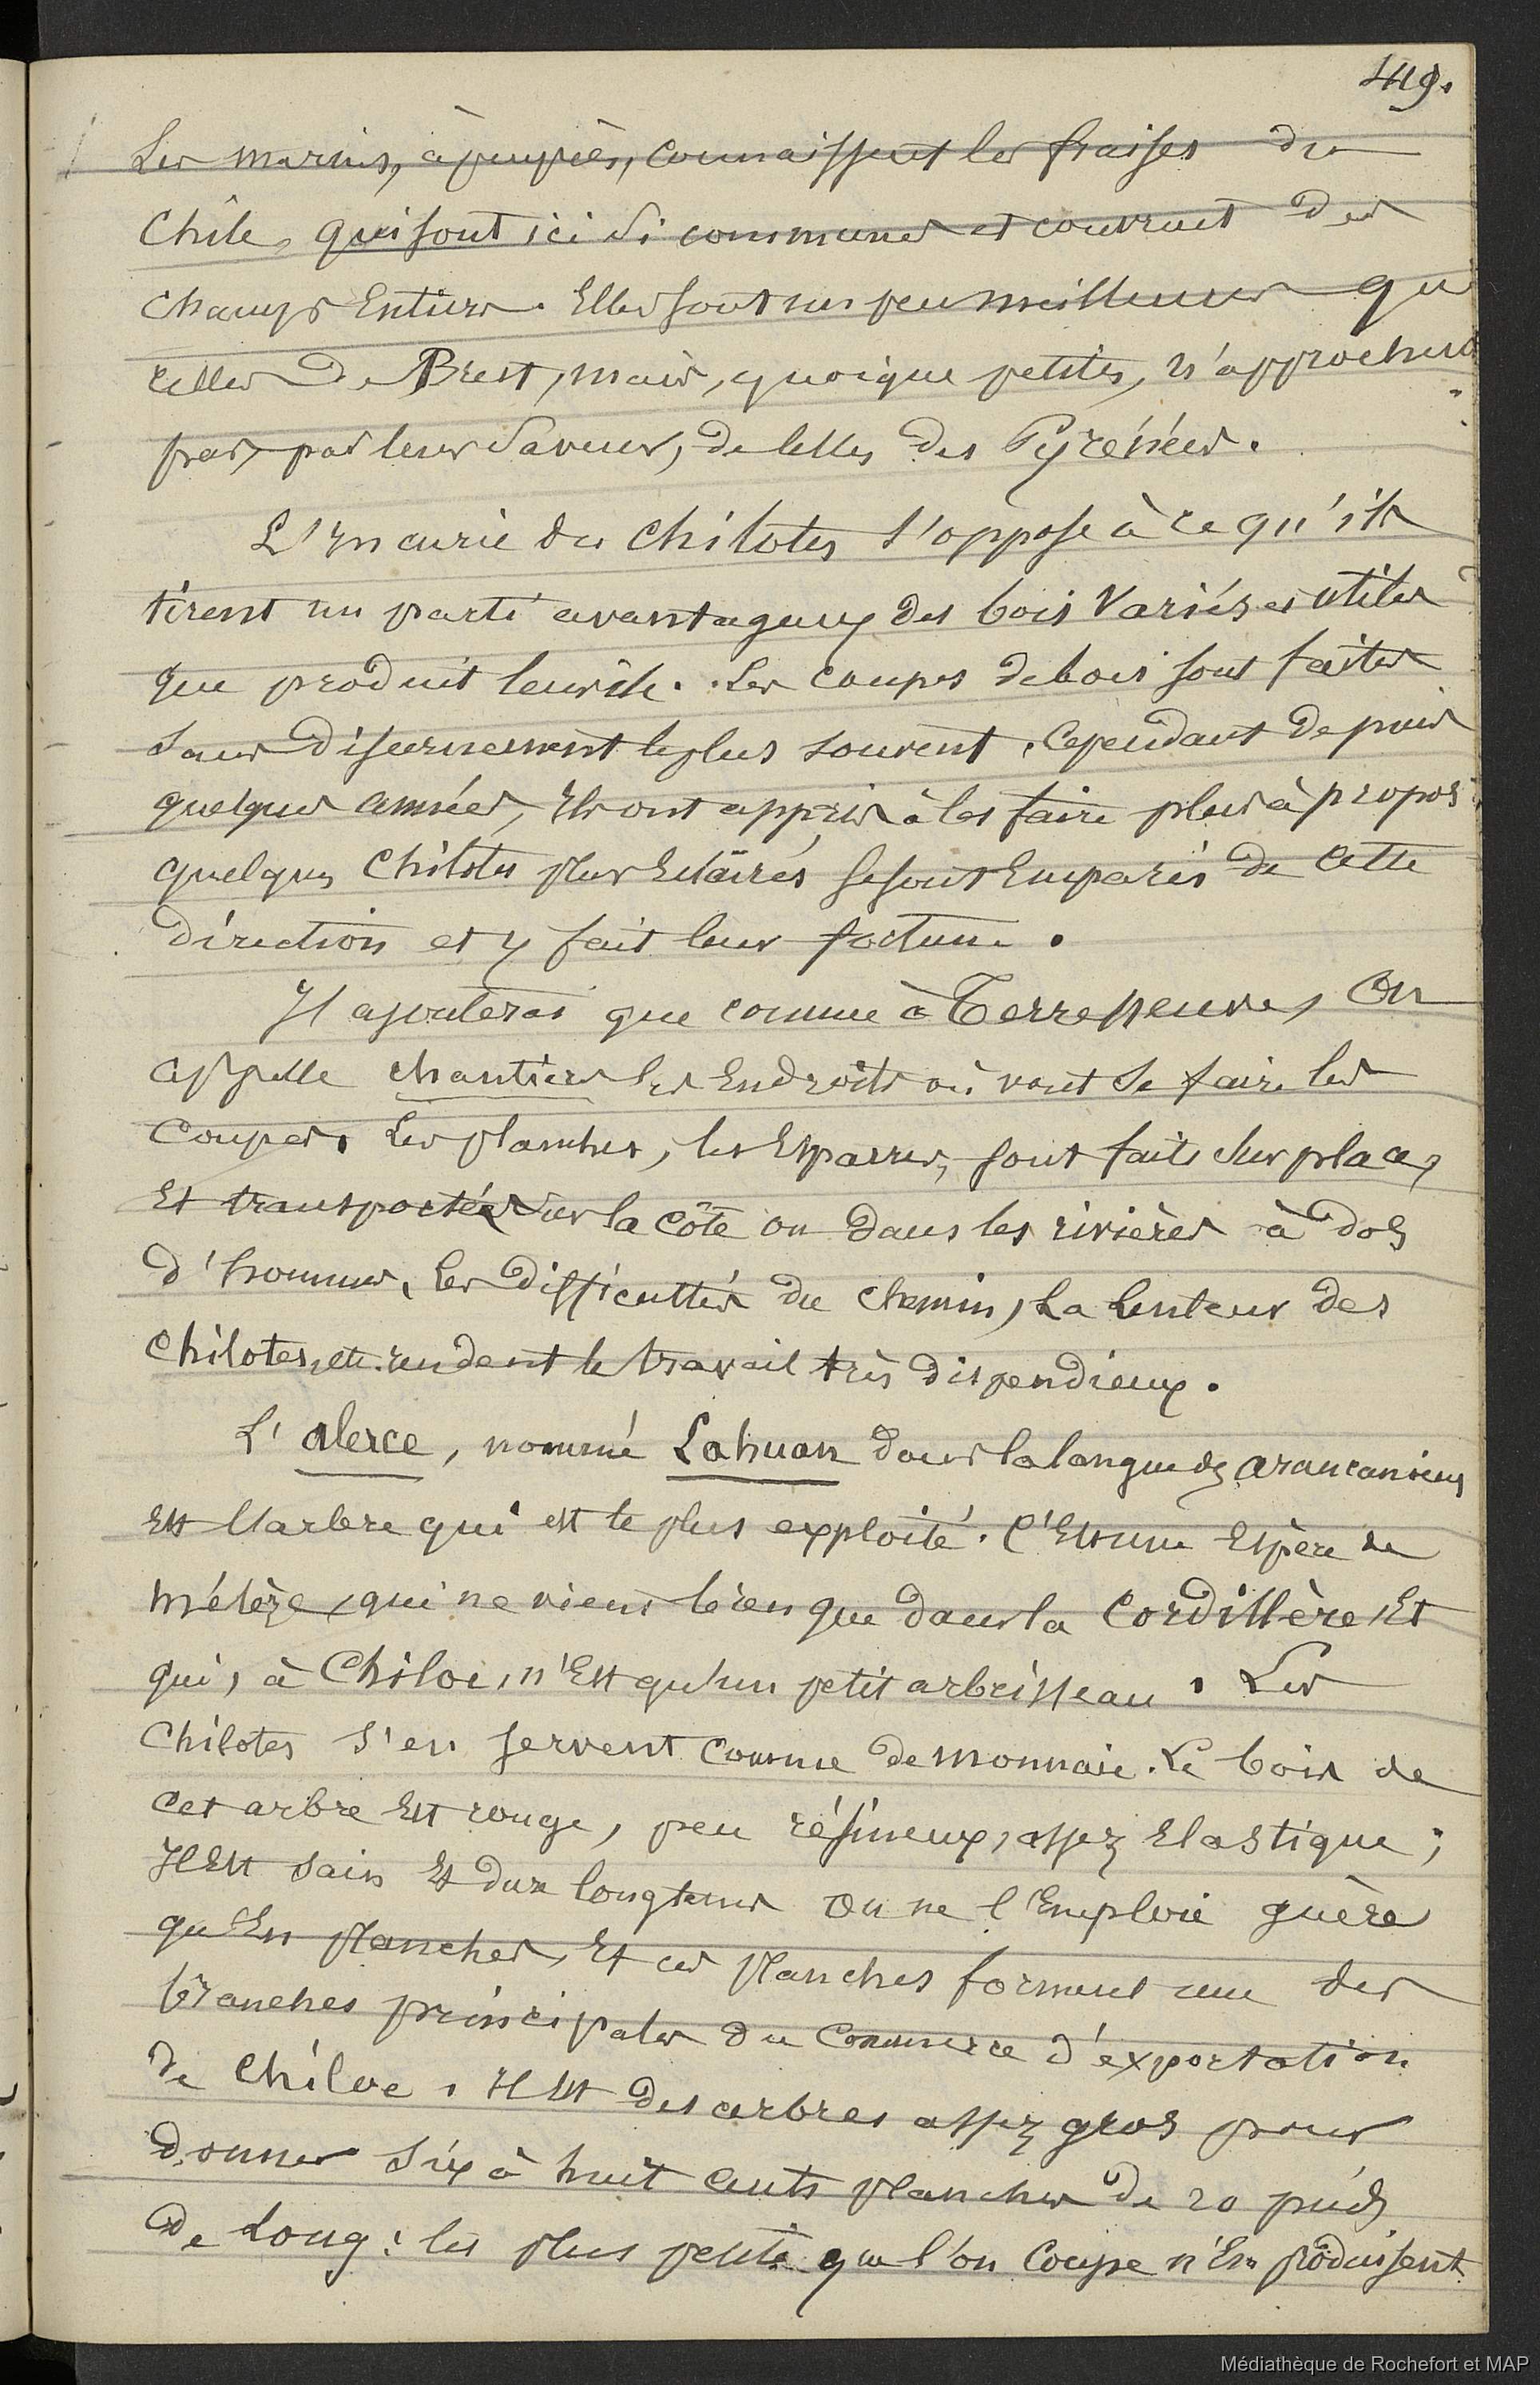 419.
Les marins, à peu près, connaissent les fraises du
Chile, qui sont ici si communes et couvrent des
champs Entiers. Elles sont un peu meilleures que
celles de Brest, mais, quoique petites, n'approchent
pas, par leur Saveur, de celles des Pyrénées.
L'Incurie des Chilotes s'oppose à ce qu'ils
tirent un parti avantageux des bois Variés et utiles
que produit leur île. Les coupes de bois sont faites
sans discernement le plus souvent. Cependant depuis
quelques années, Ils ont appris à les faire plus à propos
quelques Chilotes plus Eclairés se sont Emparés de cette
direction et y fait leur fortune.
J'ajouterai que comme à Terre neuve, On
appelle chantiers les Endroits où vont se faire les
Coupes. Les planches, les Esparres, sont faits sur place,
Et transportées sur la côte ou dans les rivières à dos
d'hommes. Les difficultés du chemin, La Lenteur des
Chilotes, etc. rendent le travail très dispendieux.
L' alerce, nommé Lahuan dans la langue des araucaniens
Est l'arbre qui est le plus exploité. C'Est une Espèce de
mélèze, qui ne vient bien que dans la Cordillère, Et
qui, à Chiloe, n'Est qu'un petit arbrisseau. Les
Chilotes s'en servent comme de monnaie. Le bois de
cet arbre Est rouge, peu résineux, assez Elastique;
Il Est sain Et dure longtems On ne l'Emploie guère
qu'En planches, Et ces planches forment une des
branches principales du Commerce d'exportation
de Chiloe. Il Est des arbres assez gros pour
donner six à huit cents planches de 20 pieds
de Long: les plus petits que l'on coupe n'En produisent
Médiathèque de Rochefort et MAP